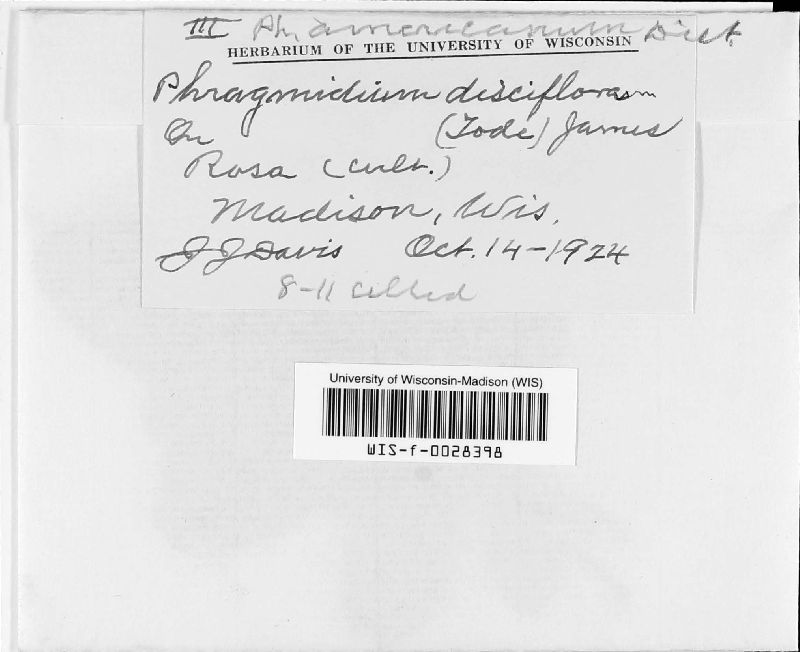 III Ph. americanum Diet.
HERBARIUM OF THE UNIVERSITY OF WISCONSIN
Phragmidium disciflorum
On (Tode) James
Rosa (cult.)
Madison, Wis.
J J Davis Oct. 14-1924
8-11 celled
University of Wisconsin-Madison (WIS)
WIS-f-0028398